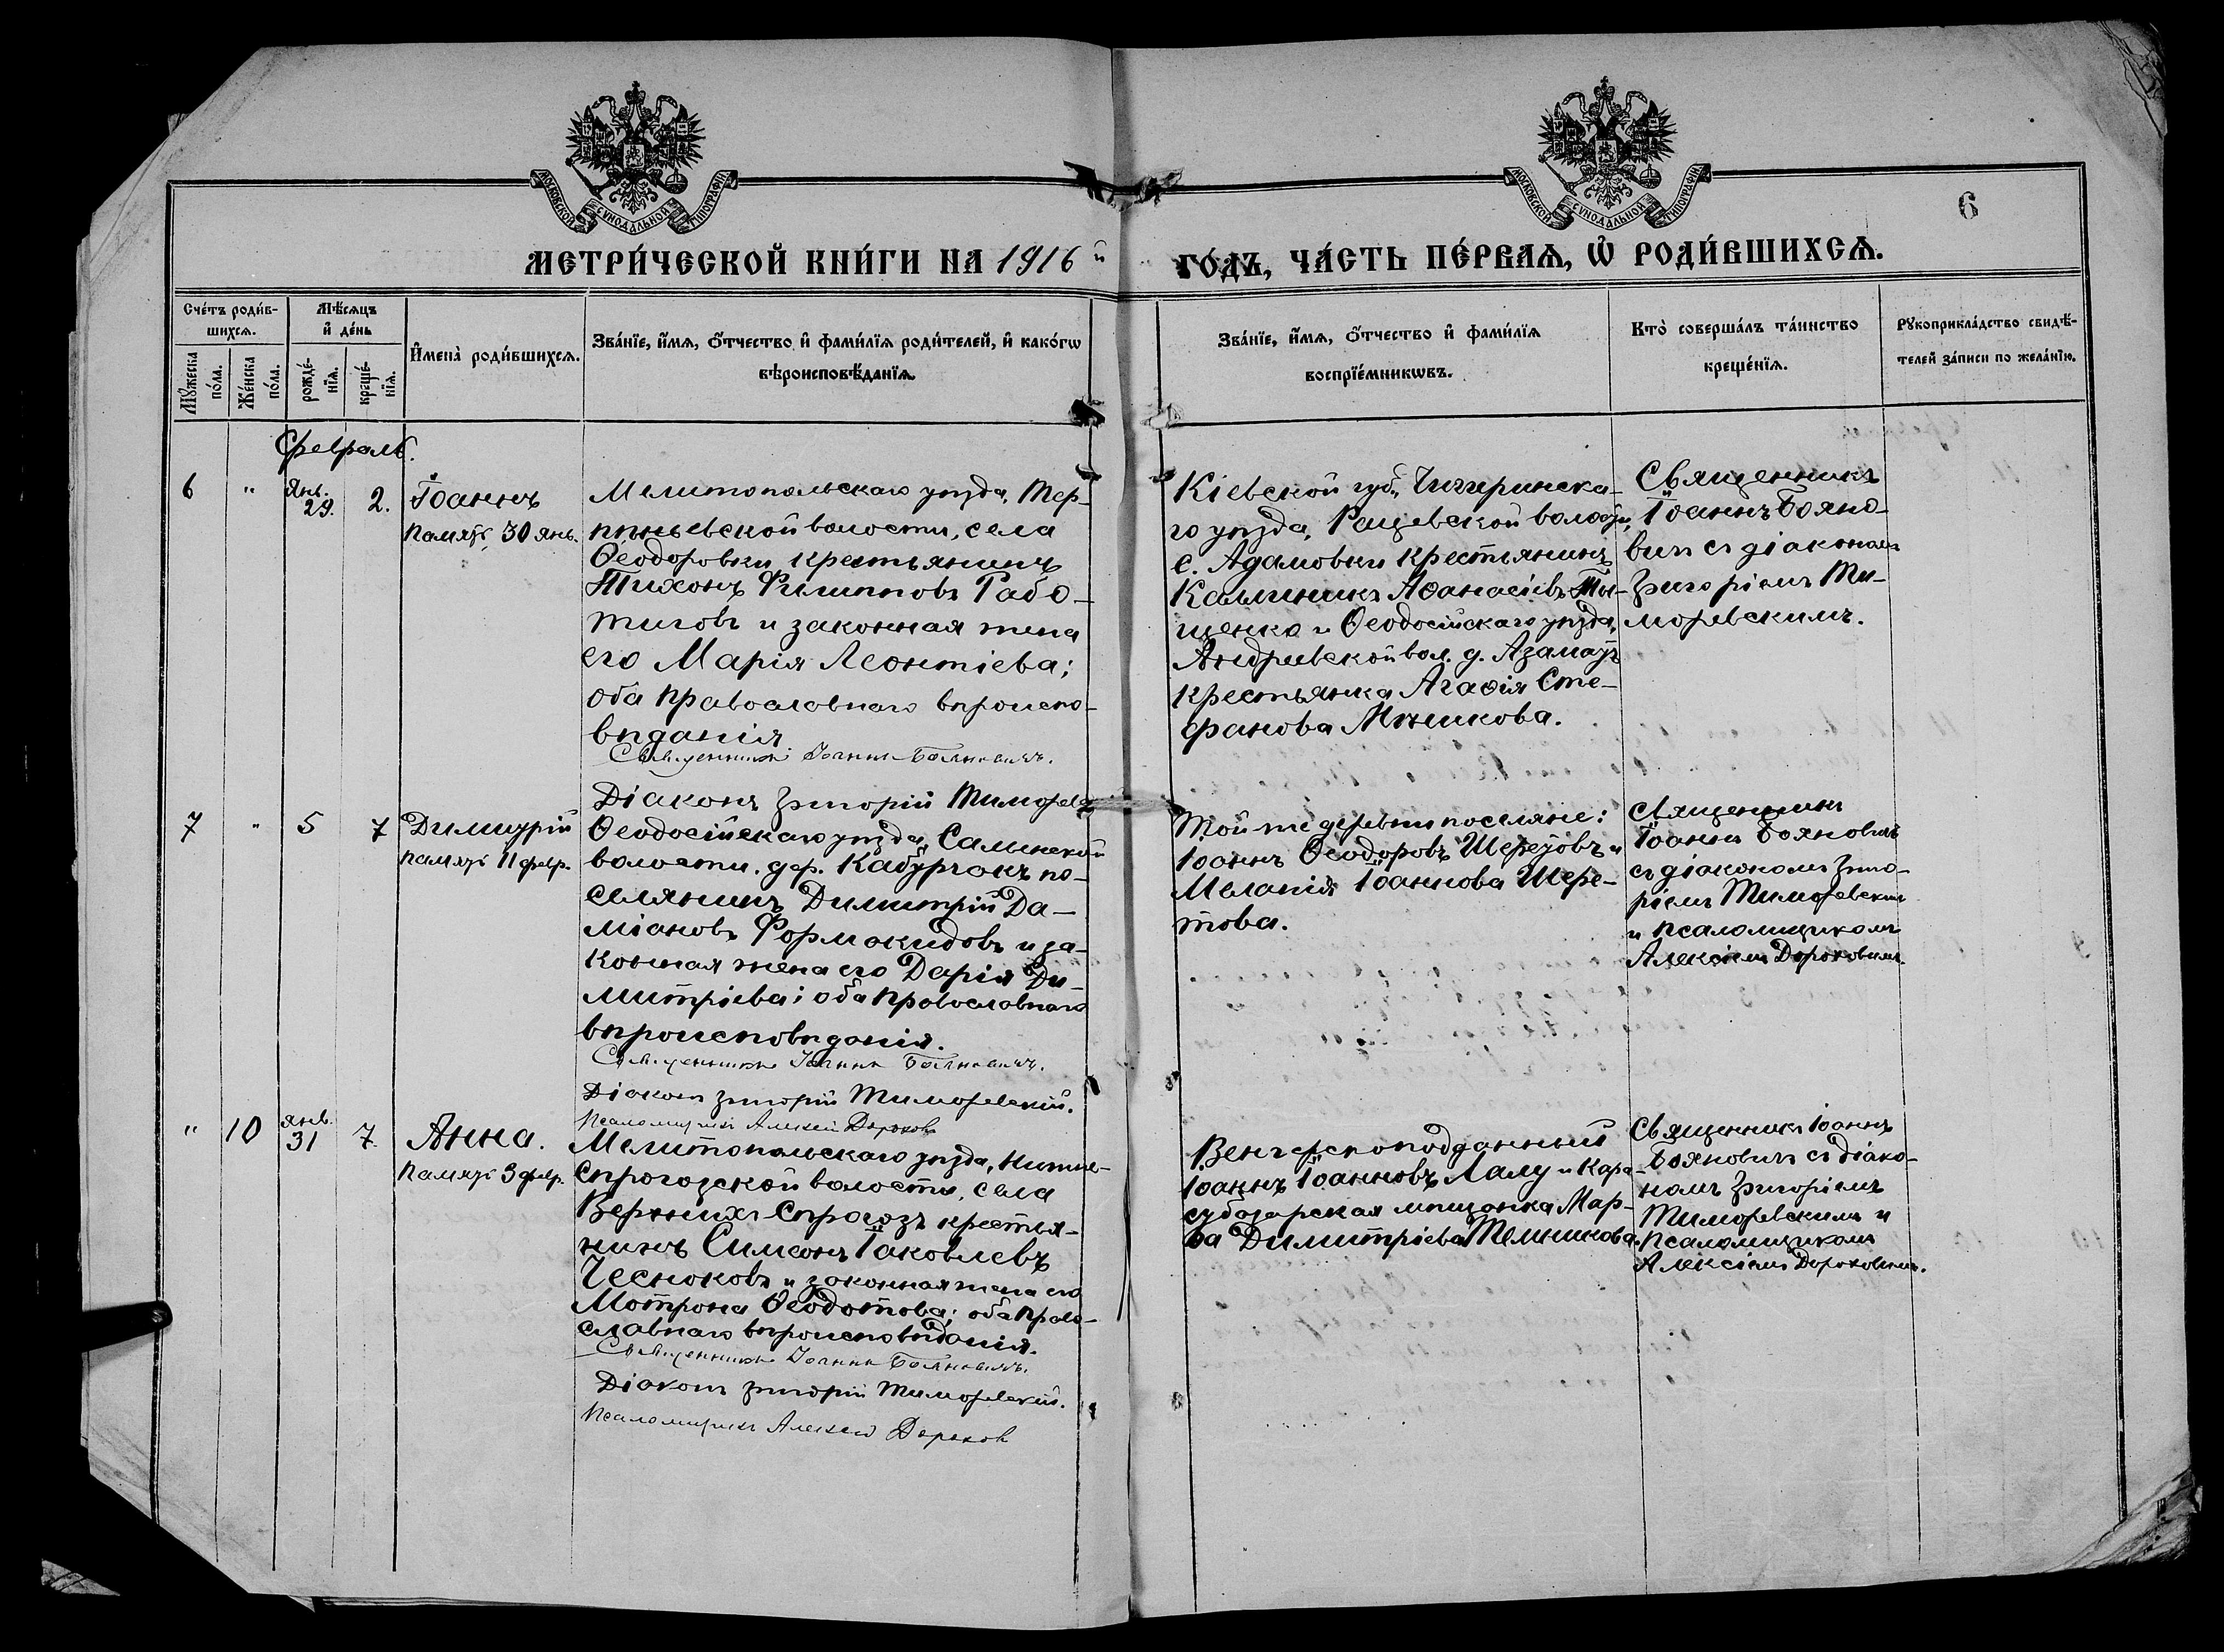 МОСКОВСКОЙ СѴНОДАЛЬНОЙ ТИПОГРАФІИ
МОСКОВСКОЙ СѴНОДАЛЬНОЙ ТИПОГРАФІИ
6
МЕТРИ́ЧЕСКОЙ КНИ́ГИ НА 1916й ГО́ДЪ, ЧА́СТЬ ПЕ́РВАѦ, Ѽ РОДИ́ВШИХСѦ.
Сче́тъ роди́в-
шихсѧ.
Мꙋ́жеска по́ла.
Же́нска по́ла.
Мѣ́сѧцъ
и҆ де́нь
рожде́-
нїѧ.
креще́-
нїѧ.
И҆мена̀ роди́вшихсѧ.
Зва́нїе, и҆́мѧ, ѻ҆́тчество и҆ фами́лїѧ роди́телей, и҆ како́гѡ
вѣроисповѣ́данїѧ.
Зва́нїе, и҆́мѧ, ѻ҆́тчество и҆ фами́лїѧ
воспрїе́мникѡвъ.
Кто̀ соверша́лъ та́инство
креще́нїѧ.
Рꙋкоприкла́дство свидѣ́-
телей за́писи по жела́нїю.
Февраль.
6
"
Янв.
29.
2.
Іоаннъ
Память 30 янв.
Мелитопольскаго уѣзда, Тер-
пѣньевской волости, села
Ѳеодоровки крестьянинъ
Тихонъ Филипповъ Рабо-
тиговъ и законная жена
его Марія Леонтіева;
оба православнаго вѣроиспо-
вѣданія
Священникъ Іоаннъ Бояновичъ.
Діаконъ Григорій Тиморев
Кіевской губ., Чигиринска-
го уѣзда, Рацевской волости,
с. Адамовки крестьянинъ
Калиникъ Аѳанасіевъ Ты-
щенко и Ѳеодосійскаго уѣзда,
Андреевской вол. д. Азаматъ
крестьянка Агаѳія Сте-
фанова Мѣшкова.
Священникъ
Іоаннъ Бояно-
вичъ съ діакономъ
Григоріемъ Ти-
моревскимъ.
7
"
5
7
Димитрій
память 11 февр.
Ѳеодосійскаго уѣзда, Салынской
волости, дер. Кабурчакъ по-
селянинъ Димитрій Да-
міановъ Формакидовъ и за-
конная жена его Дарія Ди-
митріева; оба православнаго
вѣроисповѣданія.
Священникъ Іоаннъ Бояновичъ.
Діаконъ Григорій Тиморевскій.
Псаломщикъ Алексѣй Дороховъ
Той же деревни поселяне:
Іоаннъ Ѳеодоровъ Шеретовъ и
Меланія Іоаннова Шере-
това.
Священникъ
Іоаннъ Бояновичъ
съ діакономъ Григо-
ріемъ Тиморевскимъ
и псаломщикомъ
Алексіемъ Дороховымъ.
"
10
янв.
31
7.
Анна.
Память 3 февр.
Мелитопольскаго уѣзда, Нижне-
сѣрогозской волости, села
Верхнихъ-Сѣрогозъ крестья-
нинъ Симеонъ Іаковлевъ
Чесноковъ и законная жена его
Мотрона Ѳеодотова; оба право-
славнаго вѣроисповѣданія.
Священникъ Іоаннъ Бояновичъ.
Діаконъ Григорій Тиморевскій.
Псаломщикъ Алексѣй Дороховъ
Венгерскоподданный
Іоаннъ Іоанновъ Лалу и Кара-
субазарская мѣщанка Мар-
ѳа Димитріева Темникова.
Священникъ Іоаннъ
Бояновичъ съ діако-
номъ Григоріемъ
Тиморевскимъ и
псаломщикомъ
Алексіемъ Дороховымъ.